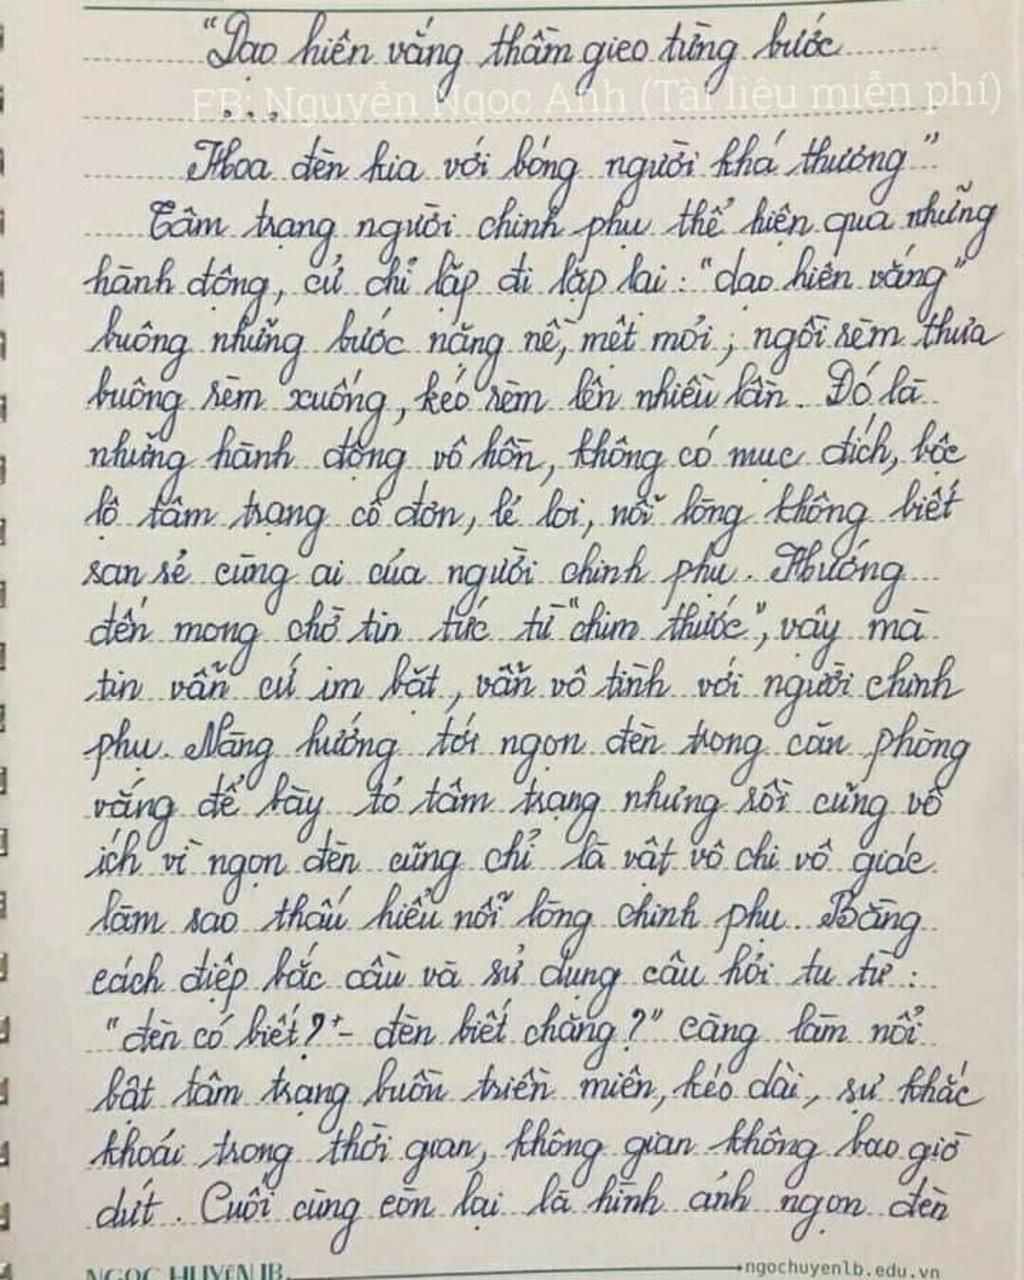 “Dạo hiên vắng thầm gieo từng bước
FB: Nguyễn Ngọc Anh (Tài liệu miễn phí)
...
Hoa đèn kia với bóng người khá thương”
Tâm trạng người chinh phụ thể hiện qua những
hành động, cử chỉ lặp đi lặp lại: “dạo hiên vắng”
buông những bước nặng nề, mệt mỏi; ngồi rèm thưa
buông rèm xuống, kéo rèm lên nhiều lần. Đó là
những hành động vô hồn, không có mục đích, bộc
lộ tâm trạng cô đơn, lẻ loi, nỗi lòng không biết
san sẻ cùng ai của người chinh phụ. Hướng
đến mong chờ tin tức từ “chim thước”, vậy mà
tin vẫn cứ im bặt, vẫn vô tình với người chinh
phụ. Nàng hướng tới ngọn đèn trong căn phòng
vắng để bày tỏ tâm trạng nhưng rồi cũng vô
ích vì ngọn đèn cũng chỉ là vật vô chi vô giác
làm sao thấu hiểu nỗi lòng chinh phụ. Bằng
cách điệp bắc cầu và sử dụng câu hỏi tu từ:
“đèn có biết?” - đèn biết chăng?” càng làm nổi
bật tâm trạng buồn triền miên, kéo dài, sự khắc
khoải trong thời gian, không gian không bao giờ
dứt. Cuối cùng còn lại là hình ảnh ngọn đèn
NGOC HUYEN LB
ngochuyenlb.edu.vn